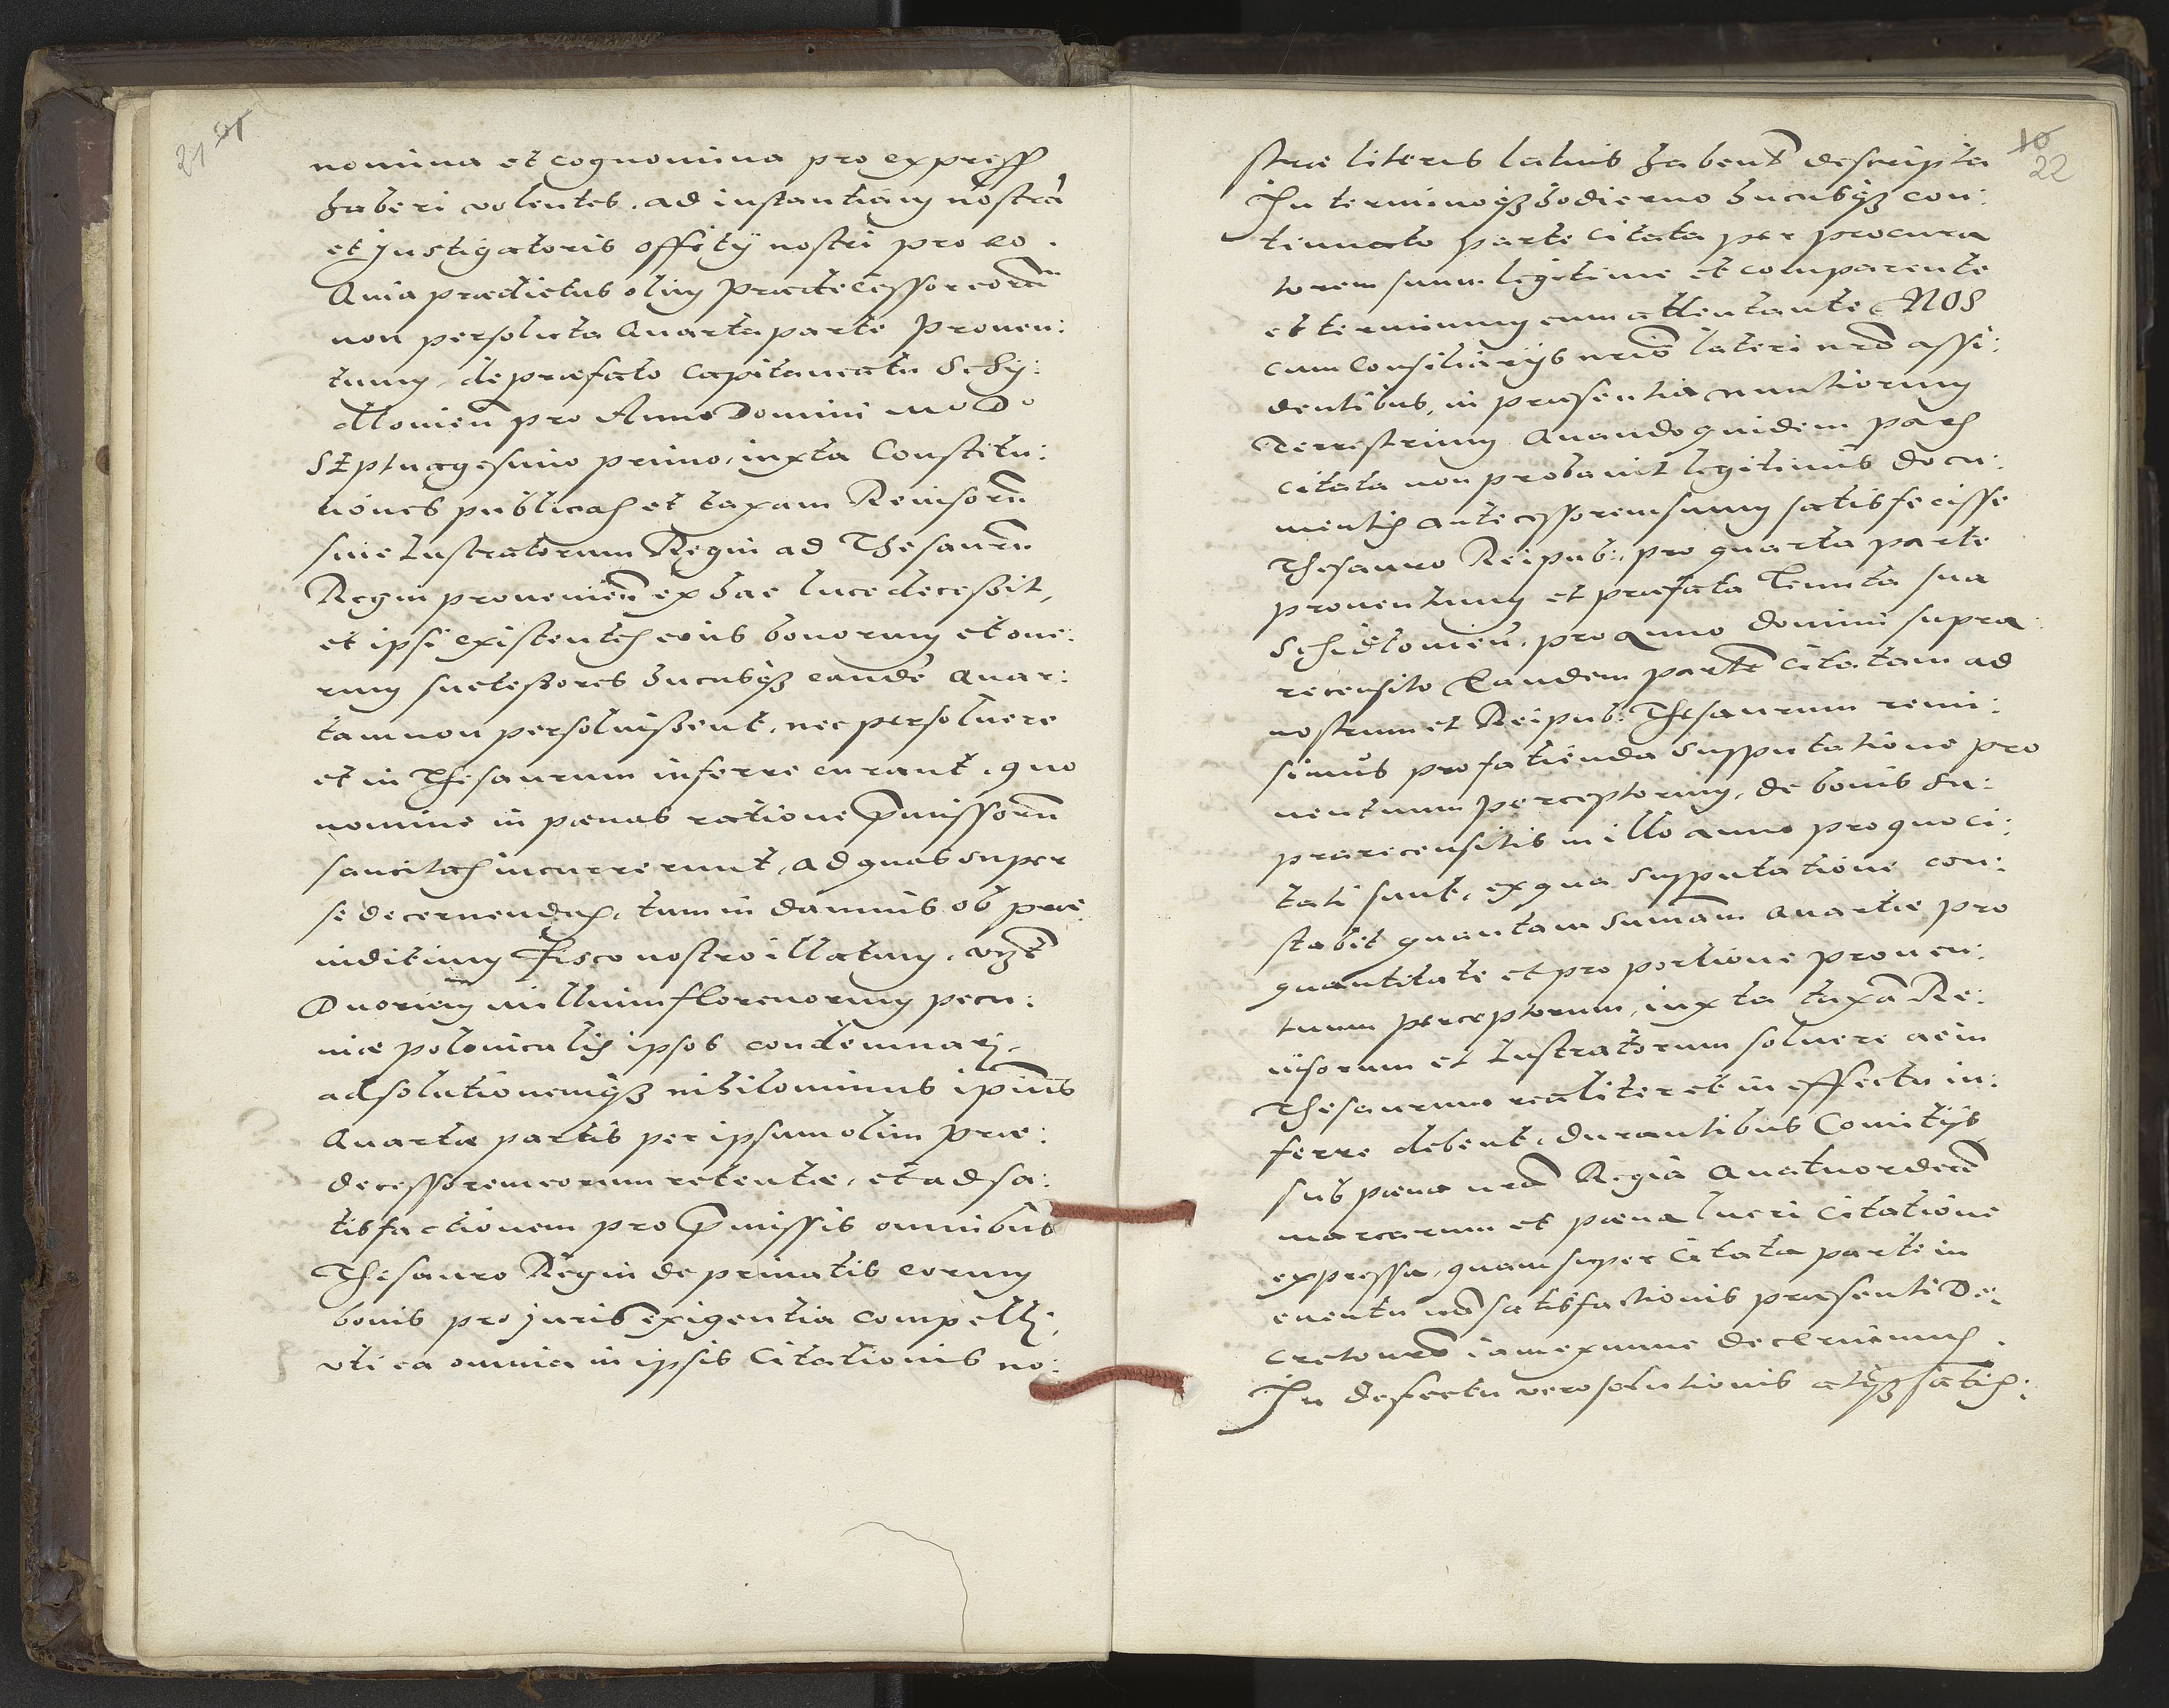 21
nomina et cognomina pro express
haberi volentes, ad instantiam nostrã
et Instigatoris offitÿ nostri pro eo.
Quia prædictus olim Prædecessor eorũ
non persoluta Quarta parte Prouen:
tuum, de præfato Capitaneatu Schy:
dlouieñ pro Anno Domini MoDo
SEptuagesimo primo, iuxta Constitu:
tiones publicas et taxam Reuisorũ
siue Lustratorum Regni ad Thesaurũ
Regni prouenieñ ex hac luce decessit,
et ipsi existentes eius bonorum et one:
rum successores hucusqȝ eandẽ Quar:
tam non persoluissent, nec persoluere
et in Thesaurum inferre curant, quo
nomine in pœnas ratione p̃missorũ
sancitas incurrerunt, ad quas super
se decernendas, tum in damnis ob præ
iuditium Fisco nostro illatum, vzt
Duorum millium florenorum pecu:
niæ polonicalis ipsos condemnari,
ad solutionemqȝ nihilominus ipsius
Quartæ partis per ipsum olim Præ:
decessorem eorum retentæ, et ad sa:
tisfactionem pro p̃missis omnibus
Thesauro Regni de priuatis eorum
bonis pro juris exigentia compelli,
vti ea omnia in ipsis Citationis no:
10
22
stræ literis latius habent descripta
In terminoqȝ hodierno hucusqȝ con:
tinuato parte citata per procura
torem suum legitime et comparente
et terminum cum attentante NOS
cum Consiliarÿs nris lateri nro assi:
dentibus, in præsentia nuntiorum
Terrestrium Quandoquidem pars
citata non probauit legitimis docu:
mentis antecessorem suum satisfecisse
Thesauro Reipub: pro quarta parte
prouentuum et præfata Tenuta sua
Schidlouieñ, pro Anno Domini supra
recensito Eandem partẽ citatam ad
nostrum et Reipub: Thesaurum remi:
simus pro facienda supputatione pro
uentuum perceptorum, de bonis su:
prarecensitis in illo anno pro quo ci:
tati sunt, ex qua supputatione con:
stabit quantam sumam Quartæ pro
quantitate et proportione prouen:
tuum perceptorum, iuxta taxã Re:
uisorum et Lustratorum soluere ac in
Thesaurum realiter et in effectu in:
ferre debent, durantibus Comitÿs
sub pœna nrã Regia Quatuordecĩ
marcarum et pœna lueri Citatione
expressa, quam super Citata parte in
euentu nõ satisfactionis præsenti De:
creto nrõ iam ex nunc decernimus.
In defectu vero solutionis atqȝ satis: